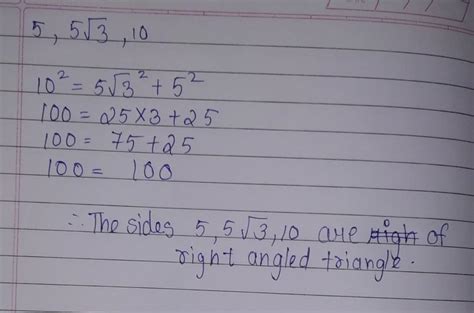 5, 5√3, 10
10² = 5√3² + 5²
100 = 25×3+25
100 = 75+25
100 = 100
∴ The sides 5, 5√3, 10 are of
right angled triangle.